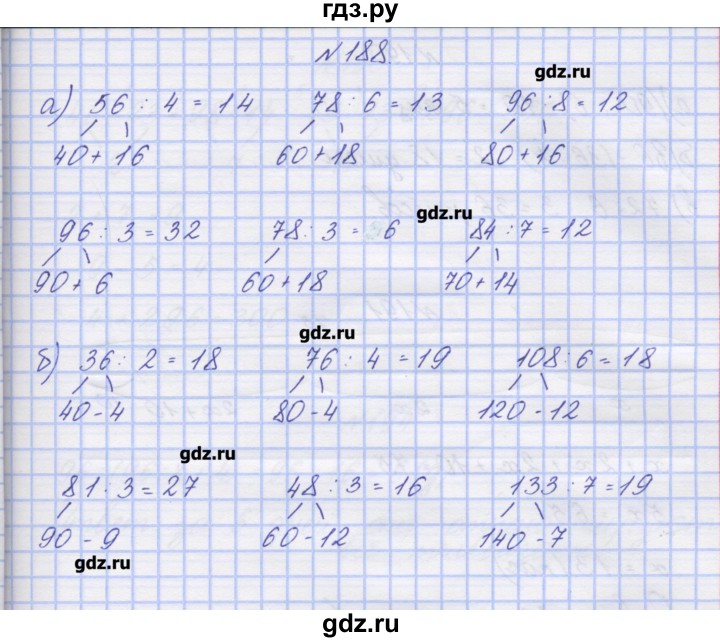 гдз.ру
№188
gdz.ru
а) 56 : 4 = 14 78 : 6 = 13 96 : 8 = 12
40 + 16 60 + 18 80 + 16
gdz.ru
96 : 3 = 32 78 : 3 = 6 84 : 7 = 12
90 + 6 60 + 18 70 + 14
gdz.ru
б) 36 : 2 = 18 76 : 4 = 19 108 : 6 = 18
40 - 4 80 - 4 120 - 12
gdz.ru
81 : 3 = 27 48 : 3 = 16 133 : 7 = 19
90 - 9 60 - 12 140 - 7
gdz.ru
gdz.ru